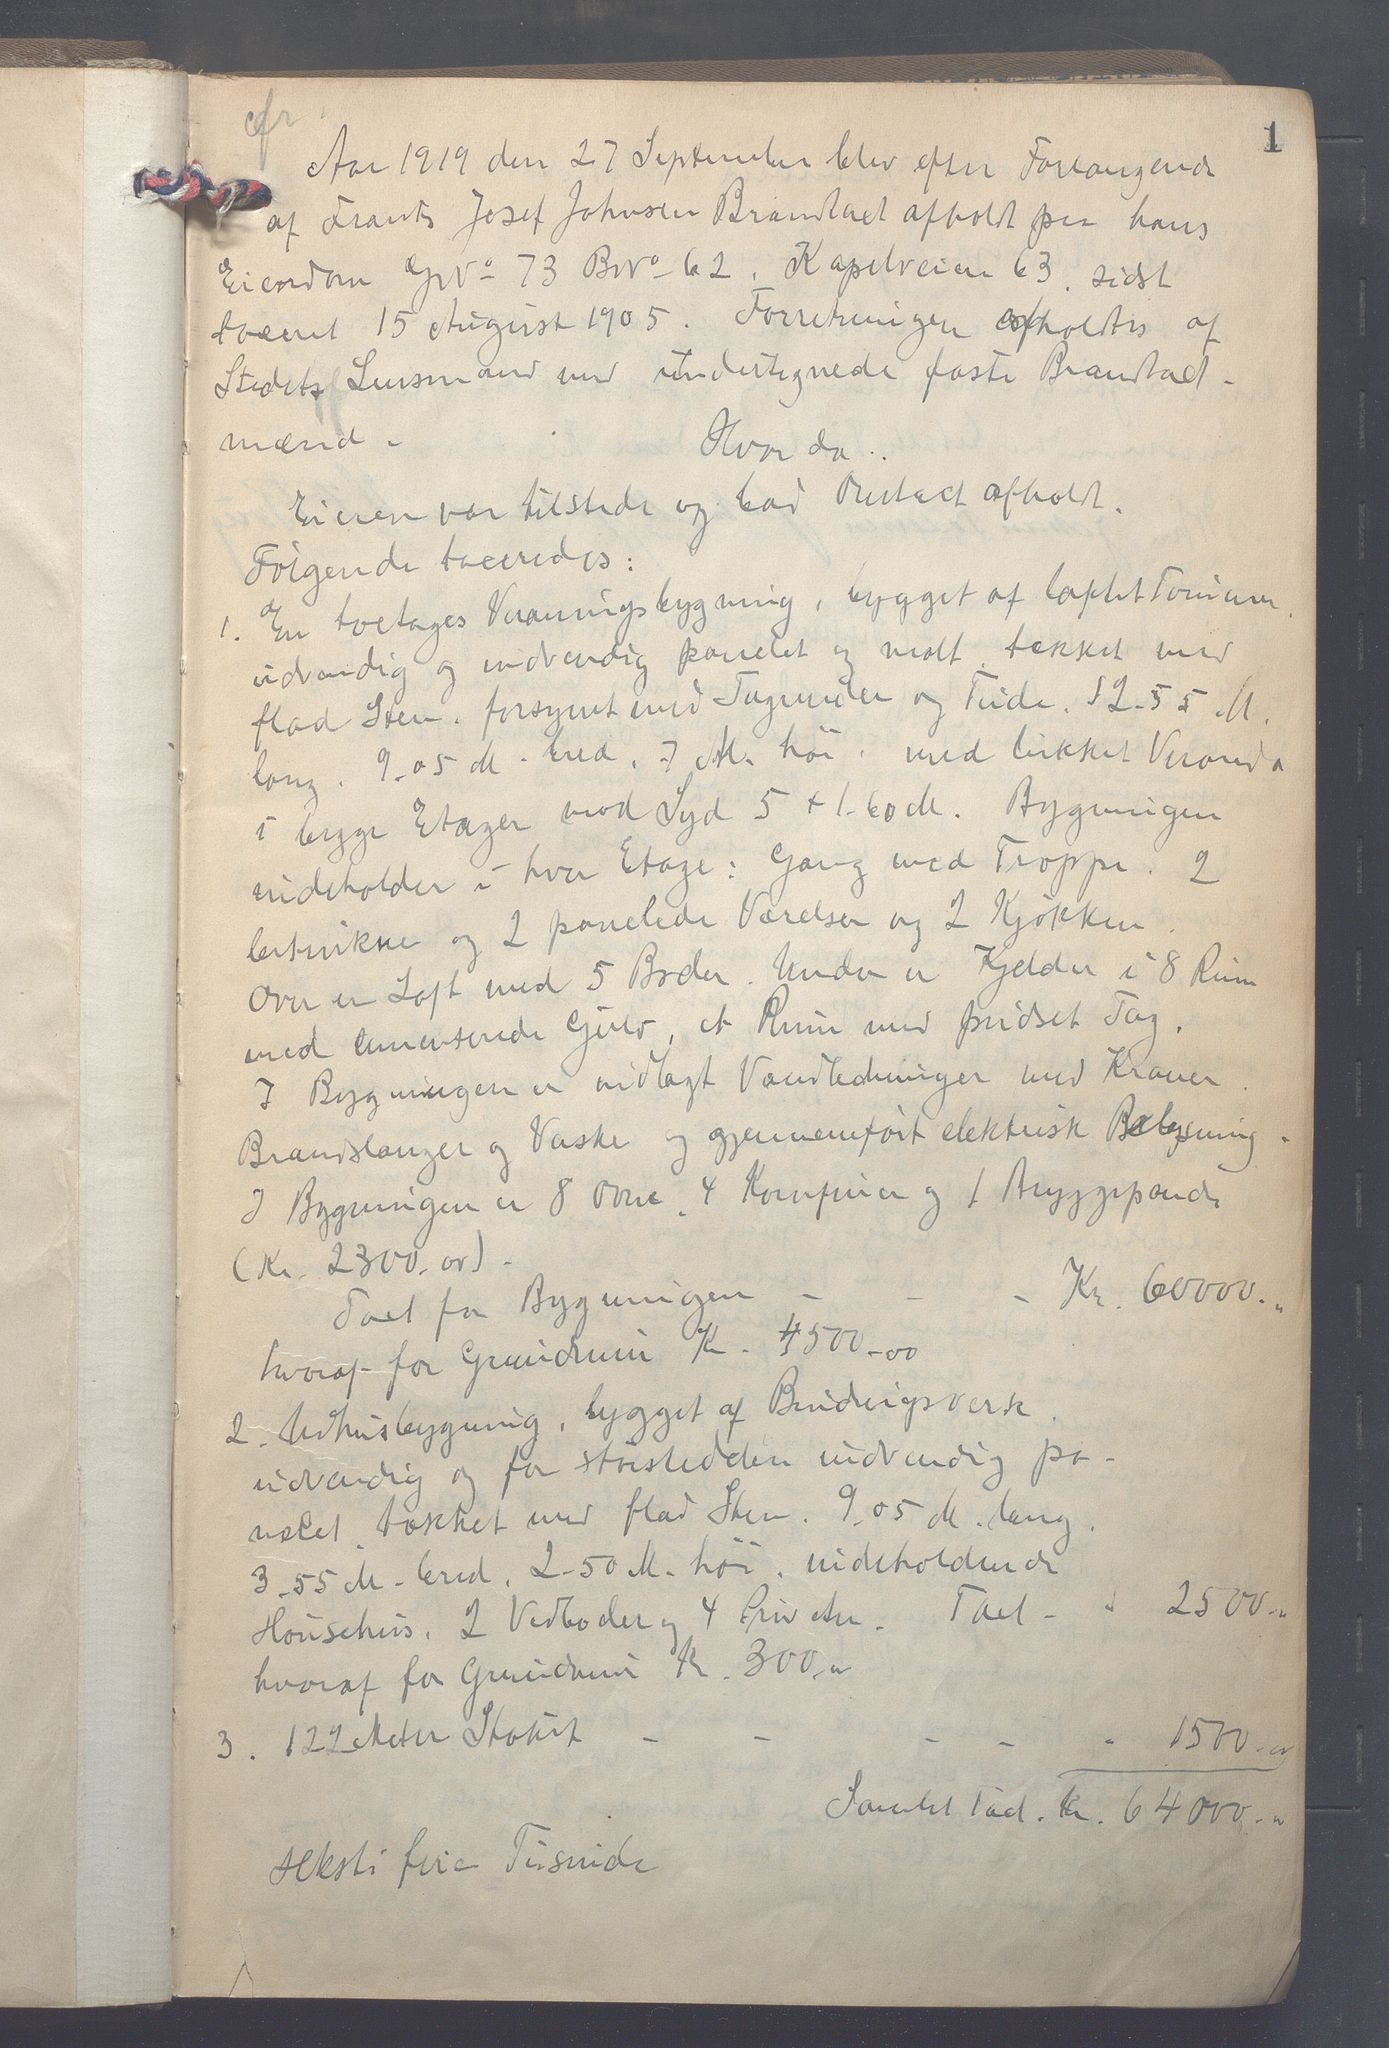 cfr
1
Aar 1919 den 27 September blev efter Forlangende
af Frants Josef Johnsen Brandtaxt afholdt paa hans
Eiendom GNo 73 BNo 62, Kapelveien 63, sidst
taxeret 15 August 1905. Forretningen afholdtes af
Stedets Lensmand med undertegnede faste Brandtaxt-
mænd.
Hvorda..
Eieren var tilstede og bad Omtaxt afholdt.
Følgende taxeredes:
1. En toetages Vaaningsbygning, bygget af laftet Tømmer,
udvendig og indvendig panelet og malt, tækket med
flad Sten, forsynet med Tagrender og Nedløb, 12.55 M.
lang, 9.05 M. bred, 7 M. høi, med lukket Veranda
i begge Etager mod Syd 5 + 1.60 M. Bygningen
indeholder i hver Etage: Gang med Trappe, 2
betrukne og 2 panelede Værelser og 2 Kjøkken.
Over er Loft med 5 Boder. Under er Kjelder i 8 Rum
med cementerede Gulv, et Rum med pudset Tag.
I Bygningen er indlagt Vandledninger med Kraner
Brandslanger og Vaske og gjennemført elektrisk Belysning.
I Bygningen er 8 Ovne, 4 Komfurer og 1 Bryggepande
(Kr. 2300.00).
Taxt for Bygningen - - - Kr. 60000.„
hvoraf for Grundmur Kr. 4500.00
2. Udhusbygning, bygget af Bindingsverk,
udvendig og for størstedelen indvendig pa-
nelet, tækket med flad Sten, 9.05 M. lang,
3.55 M. bred, 2.50 M. høi, indeholdende
Hønsehus, 2 Vedboder og 4 Priveter. Taxt - " 2500.„
hvoraf for Grundmur Kr. 300.„
3. 122 Meter Stakit - - - - " 1500.„
Samlet Taxt. Kr. 64000.„
seksti fire Tusinde